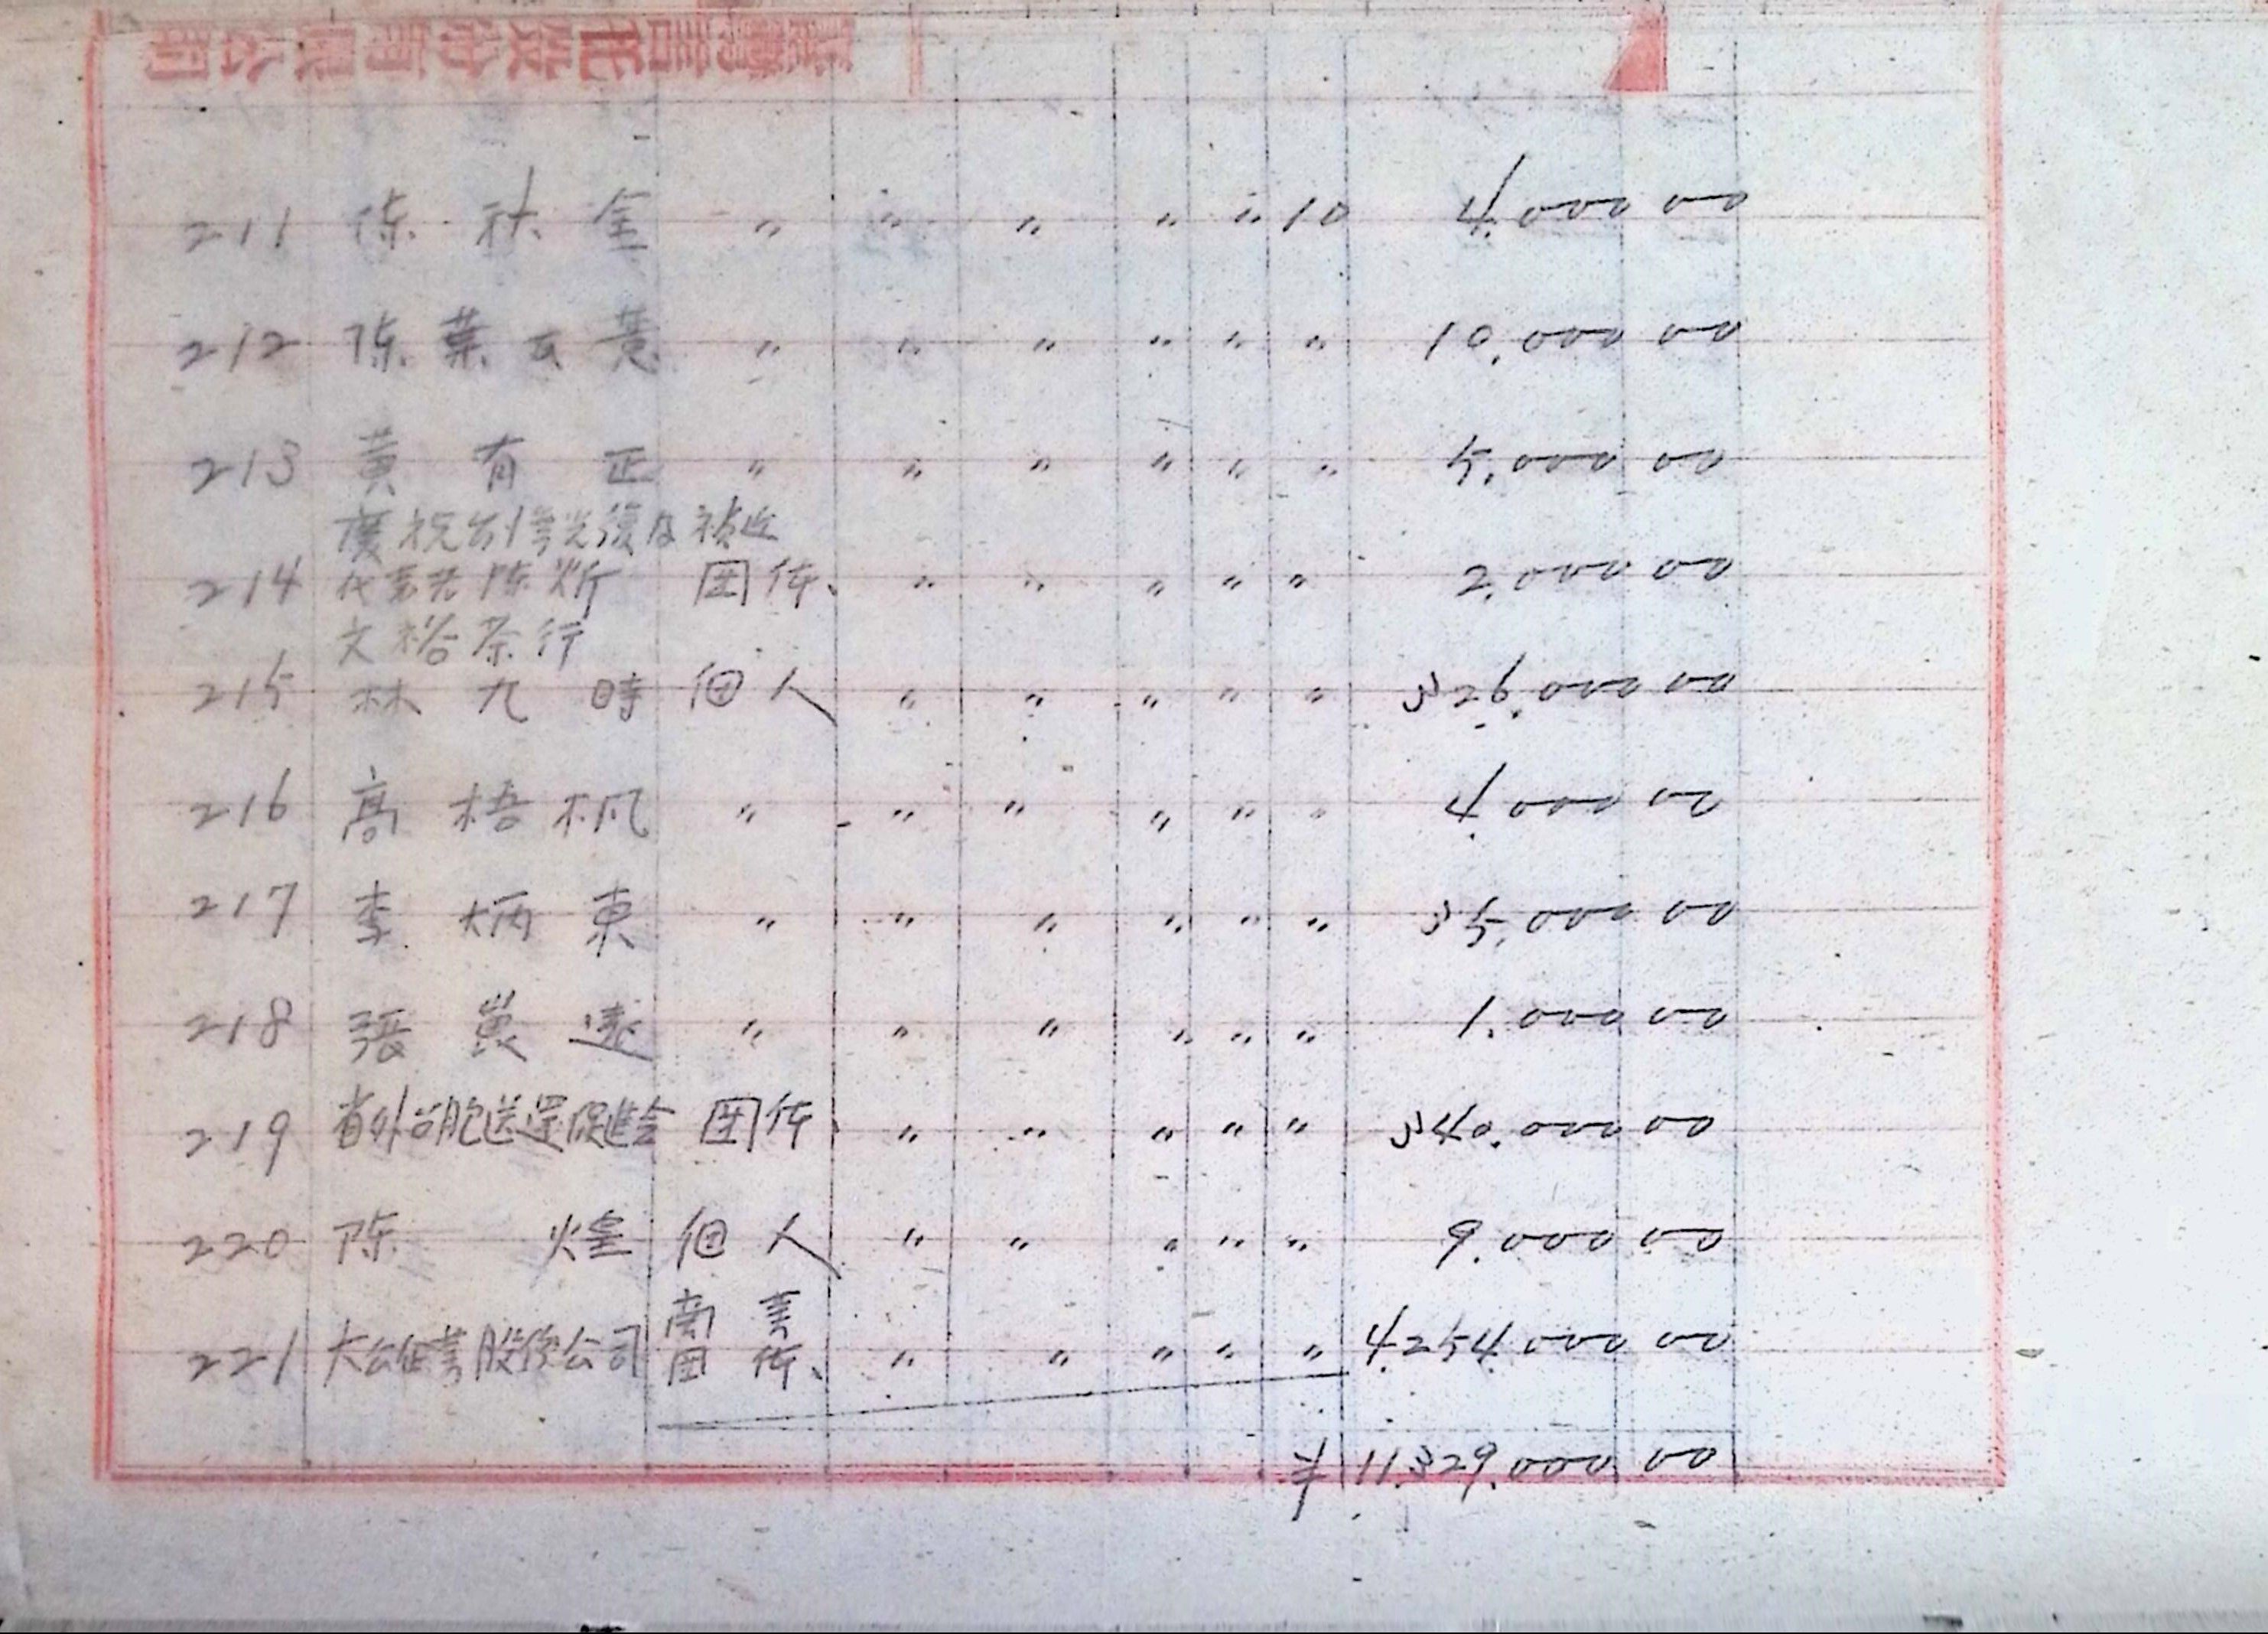 211 陳秋金 〃 〃 〃 〃 〃 10 4,000 00
212 陳葉云 〃 〃 〃 〃 〃 〃 10,000 00
213 黃有正 〃 〃 〃 〃 〃 〃 5,000 00
慶祝台湾光復及
214 代表者陳炘 団体 〃 〃 〃 〃 〃 2,000 00
文裕茶行
215 林九時 個人 〃 〃 〃 〃 〃 326,000 00
216 高梧枫 〃 〃 〃 〃 〃 〃 4,000 00
217 李炳東 〃 〃 〃 〃 〃 〃 35,000 00
218 張 遠 〃 〃 〃 〃 〃 〃 1,000 00
219 省外台胞送還促進会 団体 〃 〃 〃 〃 〃 340,000 00
220 陳煌 個人 〃 〃 〃 〃 〃 9,000 00
221 大公企業股份公司 商業団体 〃 〃 〃 〃 〃 4,254,000 00
¥11,329,000 00